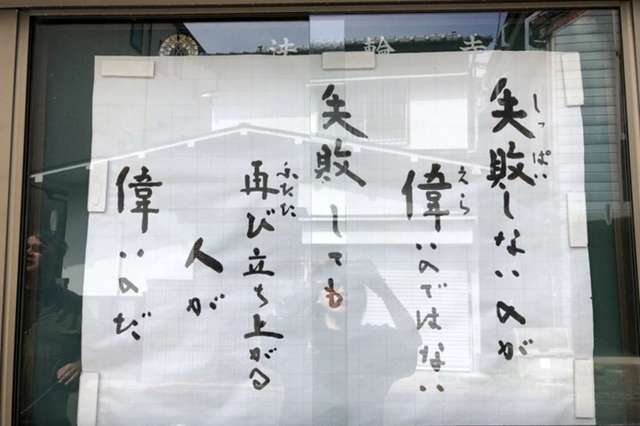 法輪寺
失敗しないのが
偉いのではない
失敗しても
再び立ち上がる
人が
偉いのだ
しっぱい
えら
ふたた